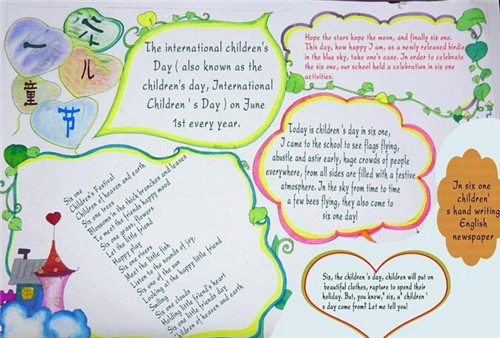 六
一
儿
童
节
The international children's
Day ( also known as the
children's day, International
Children ' s Day ) on June
1st every year.
Hope the stars hope the moon, and finally six one.
This day, how happy I am, as a newly released birdie
in the blue sky, take one's ease. In order to celebrate
the six one, our school held a celebration in six one
activities.
Today is children ' s day in six one,
I came to the school to see flags flying,
abustle and astir early, huge crowds of people
everywhere, from all sides are filled with a festive
atmosphere. In the sky from time to time
a few bees flying, they also come to
six one day!
In six one
children'
s hand writing
English
newspaper
Six one
Children's Festival
Children of heaven and earth
Six one trees
Blossoms in the thick branches and leaves
To meet the friends happy mood
Six one grass, flowers
Let the little friend
Happy play
Six one rivers
Meet the little fish
Listen to the sounds of joy.
Six one of the sun
Looking at the happy little friend
Smiling
Six one clouds
Holding little friend's heart
Six one little friends day
Children of heaven and earth
Six, the children ' s day, children will put on
beautiful clothes, rapture to spend their
holiday. But, you know," six, a' children'
s day come from? Let me tell you!